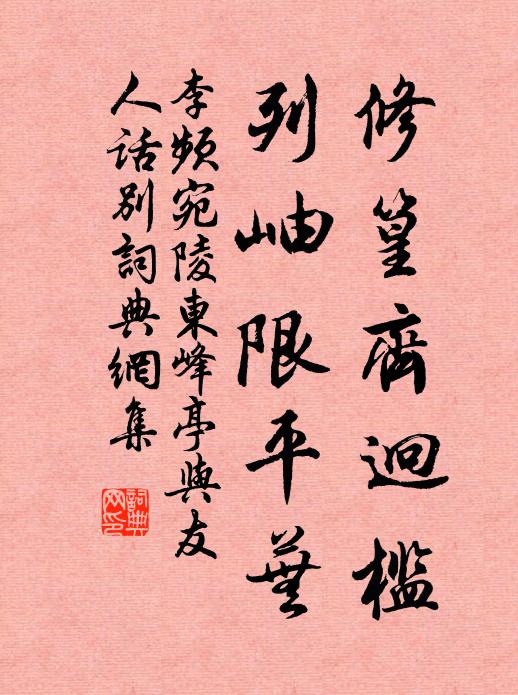 修篁齊迥檻
列岫限平蕪
李頻宛陵東峰亭與友
人話別詞典網集
詞典
網印